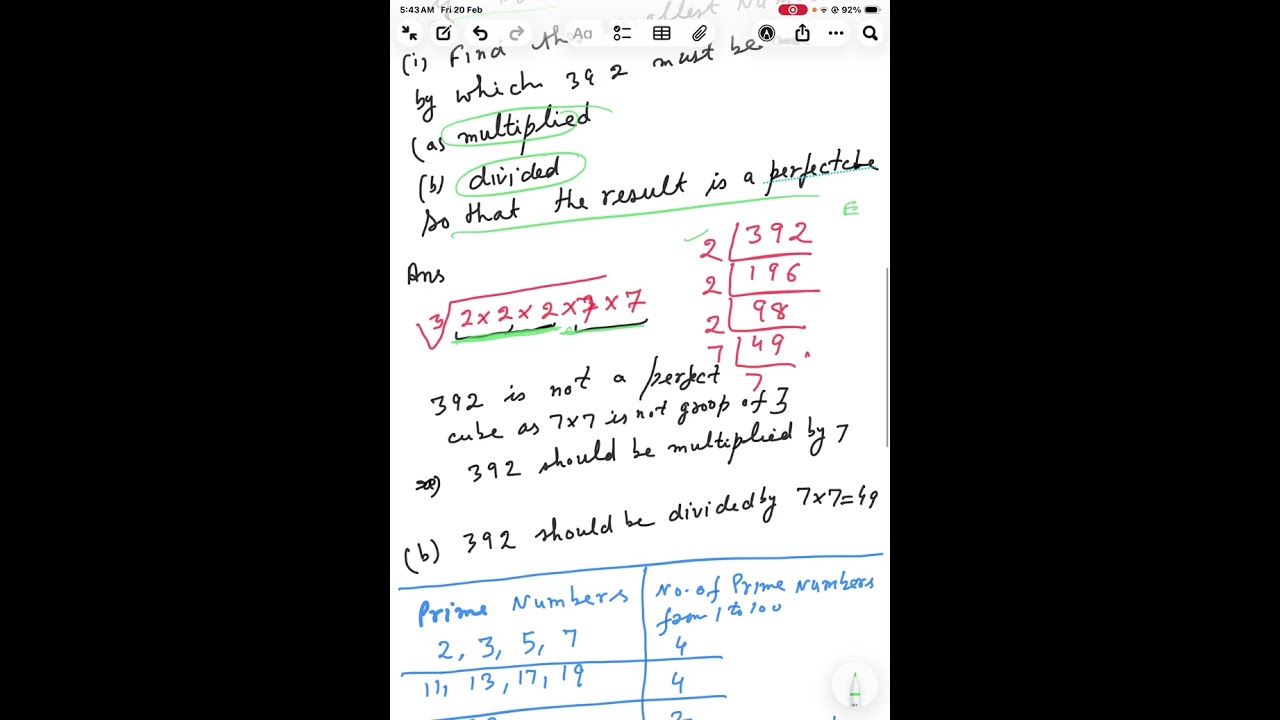 5:43AM Fri 20 Feb
92%
Aa
(i) Find th
by which 392 must be
(as multiplied
(b) divided
so that the result is a perfect
E
2 392
2 196
2 98
7 49
7
Ans
3 2 x 2 x 2 x 7 x 7
392 is not a perfect
cube as 7x7 is not groop of 3
392 should be multiplied by 7
(b) 392 should be divided by 7x7=49
Prime Numbers
No. of Prime Numbers
from 1 to 100
2, 3, 5, 7
4
11, 13, 17, 19
4